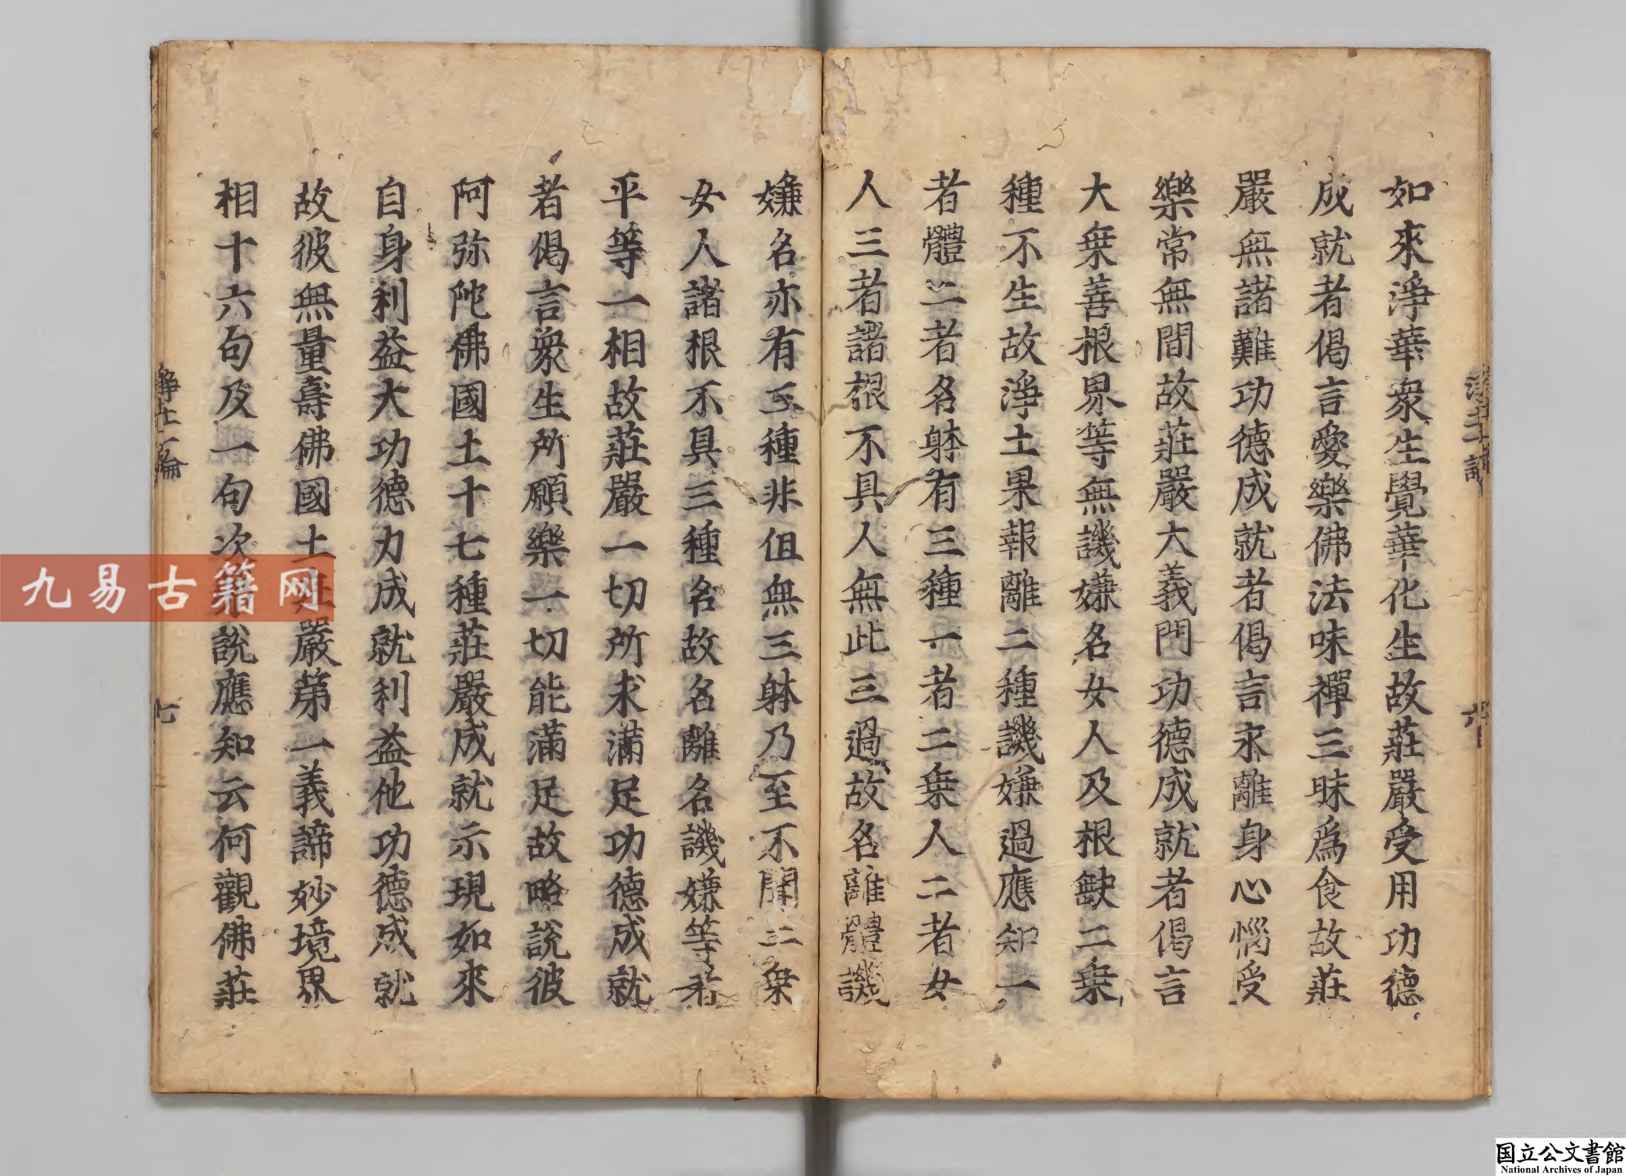 如來淨華衆生覺華化生故莊嚴受用功德
成就者偈言愛樂佛法味禪三昧爲食故莊
嚴無諸難功德成就者偈言永離身心惱受
樂常無間故莊嚴大義門功德成就者偈言
大乗善根界等無譏嫌名女人及根缺二乗
種不生故淨土果報離二種譏嫌過應知一
者體二者名躰有三種一者二乗人二者女
人三者諸根不具人無此三過故名離體譏
嫌名亦有三種非但無三躰乃至不聞二乗
女人諸根不具三種名故名離名譏嫌等者
平等一相故莊嚴一切所求滿足功德成就
者偈言衆生所願樂一切能滿足故略說彼
阿弥陀佛國土十七種莊嚴成就示現如來
自身利益大功德力成就利益他功德成就
故彼無量壽佛國土莊嚴第一義諦妙境界
相十六句及一句次第說應知云何觀佛莊
淨土論
六
淨土論
七
九易古籍网
国立公文書館
National Archives of Japan